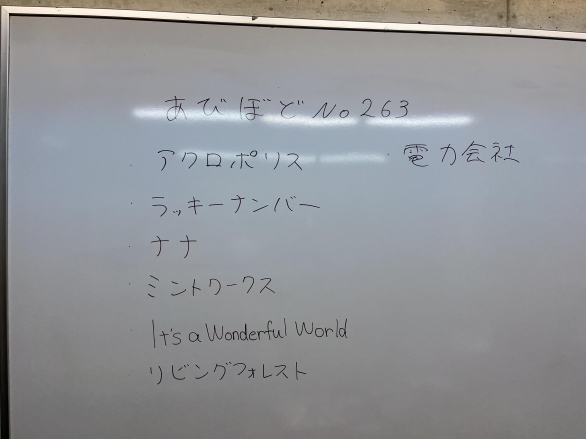 あびぼど No 263
・アクロポリス
・電力会社
・ラッキーナンバー
・ナナ
・ミントワークス
It's a Wonderful World
・リビングフォレスト